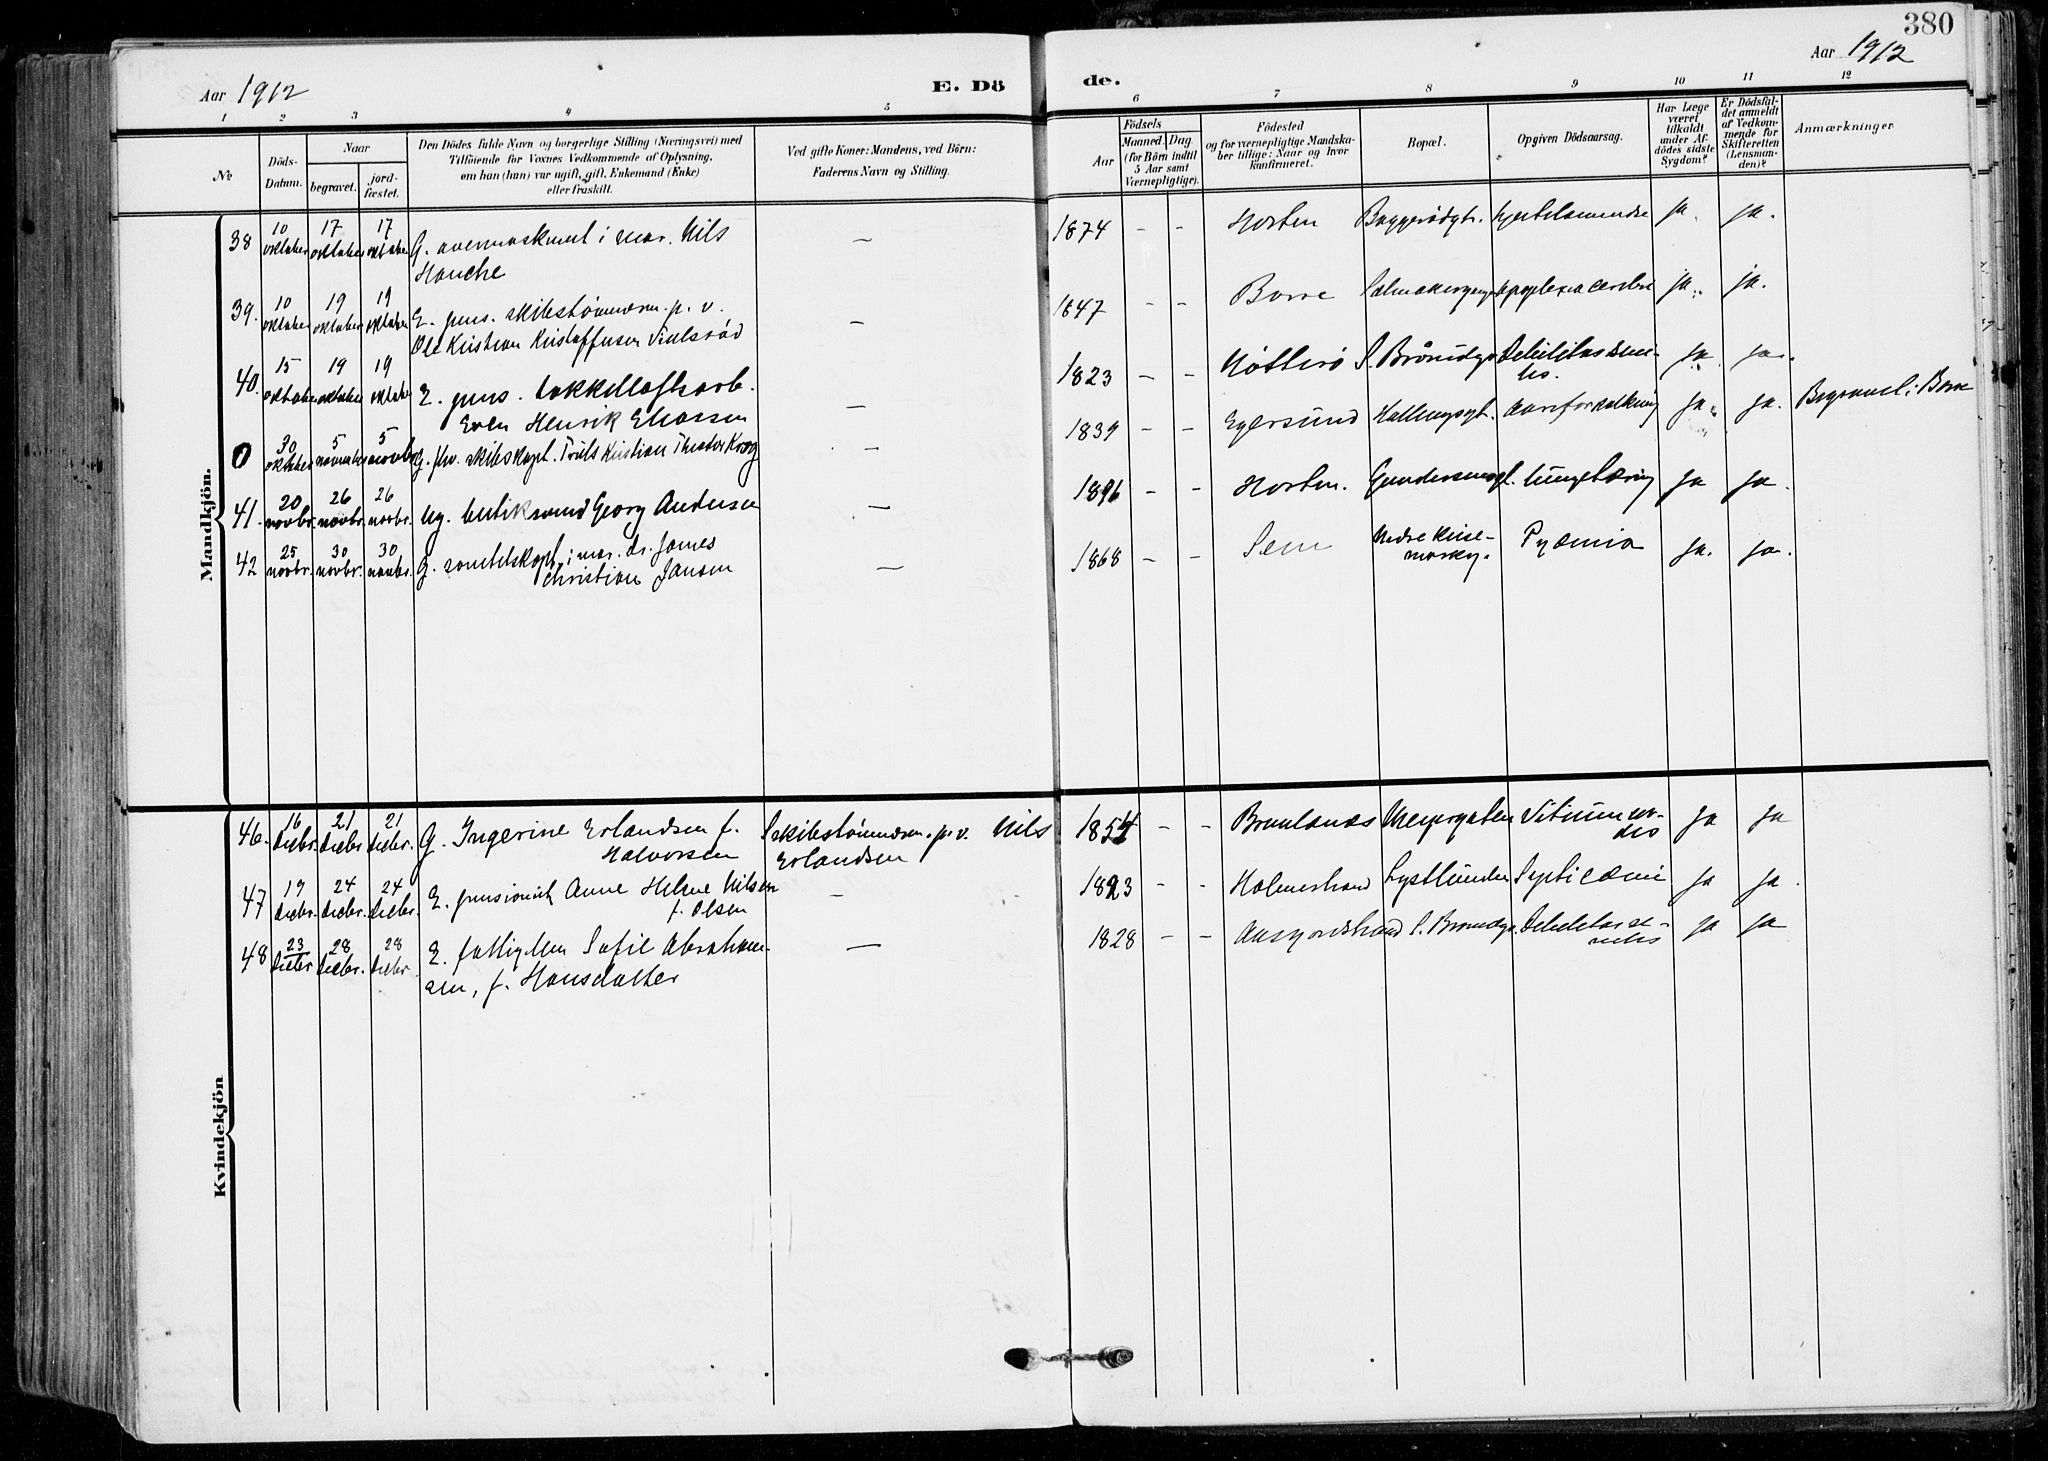 380
Aar 1912
E. Dö
de.
Aar 1912
1 2 3 4 5 6 7 8 9 10 11 12
No.
Döds-
Datum.
Naar
begravet.
jord-
fæstet.
Den Dödes fulde Navn og borgerlige Stilling (Næringsvei) med
Tilföiende for Voxnes Vedkommende af Oplysning,
om han (hun) var ugift, gift, Enkemand (Enke)
eller fraskilt.
Ved gifte Koner: Mandens, ved Börn:
Faderens Navn og Stilling.
Födsels
Aar
Maaned. Dag.
(for Börn indtil
5 Aar samt
Værnepligtige).
Födested
og for værnepligtige Mandska-
ber tillige: Naar og hvor
konfirmeret.
Bopæl.
Opgiven Dödsaarsag.
Har Læge
været
tilkaldt
under Af-
dödes sidste
Sygdom?
Er Dödsfal-
det anmeldt
af Vedkom-
mende for
Skifteretten
(Lensman-
den)?
Anmærkninger
Mandkjön.
38 10 oktober 17 oktober 17 oktober G. i mar. Nils
Hauche
— 1874 - - Horten ja. ja.
39. 10 oktober 19 oktober 19 oktober E. pens. skibstømmerm. p. v.
Ole Kristian Kristoffersen
— 1847 - - Borre apoplexia cerebri ja. ja.
40. 15 oktober 19 oktober 19 oktober E. pens. takkelloftsarb.
Even Henrik Eliassen
— 1823 - - Nøtterø Debilitas seni-
lis. ja ja.
0 30 oktober 5 november 5 novbr. G. fhv. skibskapt. Truls Kristian Theodor Krog
— 1839 - - Egersund aareforkalkning ja. ja. Begravet i Borre
41. 20 novbr. 26 novbr. 26 novbr. ug. butiksvend Georg Andersen
— 1896 - - Horten. tungtæring ja ja.
42 25 novbr. 30 novbr. 30 novbr. G. i mar. dr. James
Christian Jansen
— 1868 - - Sem Nedre Pyæmia ja. ja.
Kvindekjön
46. 16 decbr. 21 decbr. 21 decbr. G. Ingerine Erlandsen f.
Halvorsen
skibstømmerm. p. v. Nils
Erlandsen
1854 - - Brunlanæs Meyergaten Vitium cor-
dis ja ja
47 19 decbr. 24 decbr. 24 decbr. E. pensionist Anne Helene Nilsen
f. Olsen
— 1823 - - Holmestrand Lystlunden Septicæmi ja ja.
48 23 decbr. 28 decbr. 28 decbr. E. fattiglem Sofie Abraham-
sen, f. Hansdatter
— 1828 - - Aasgordstrand Debilitas se-
nilis ja ja